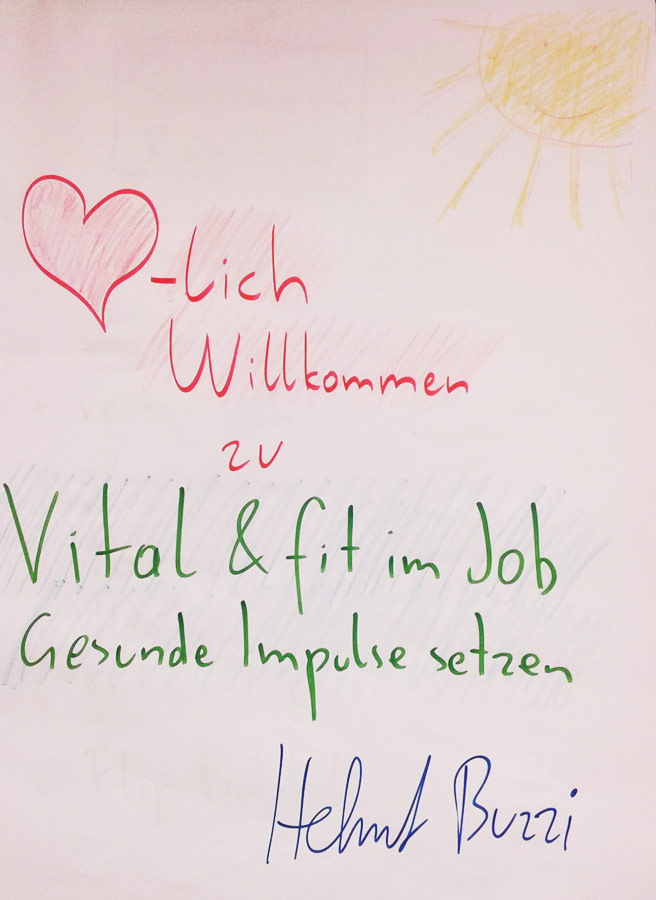 ♥-lich
Willkommen
zu
Vital & fit im Job
Gesunde Impulse setzen
Helmut Buzzi